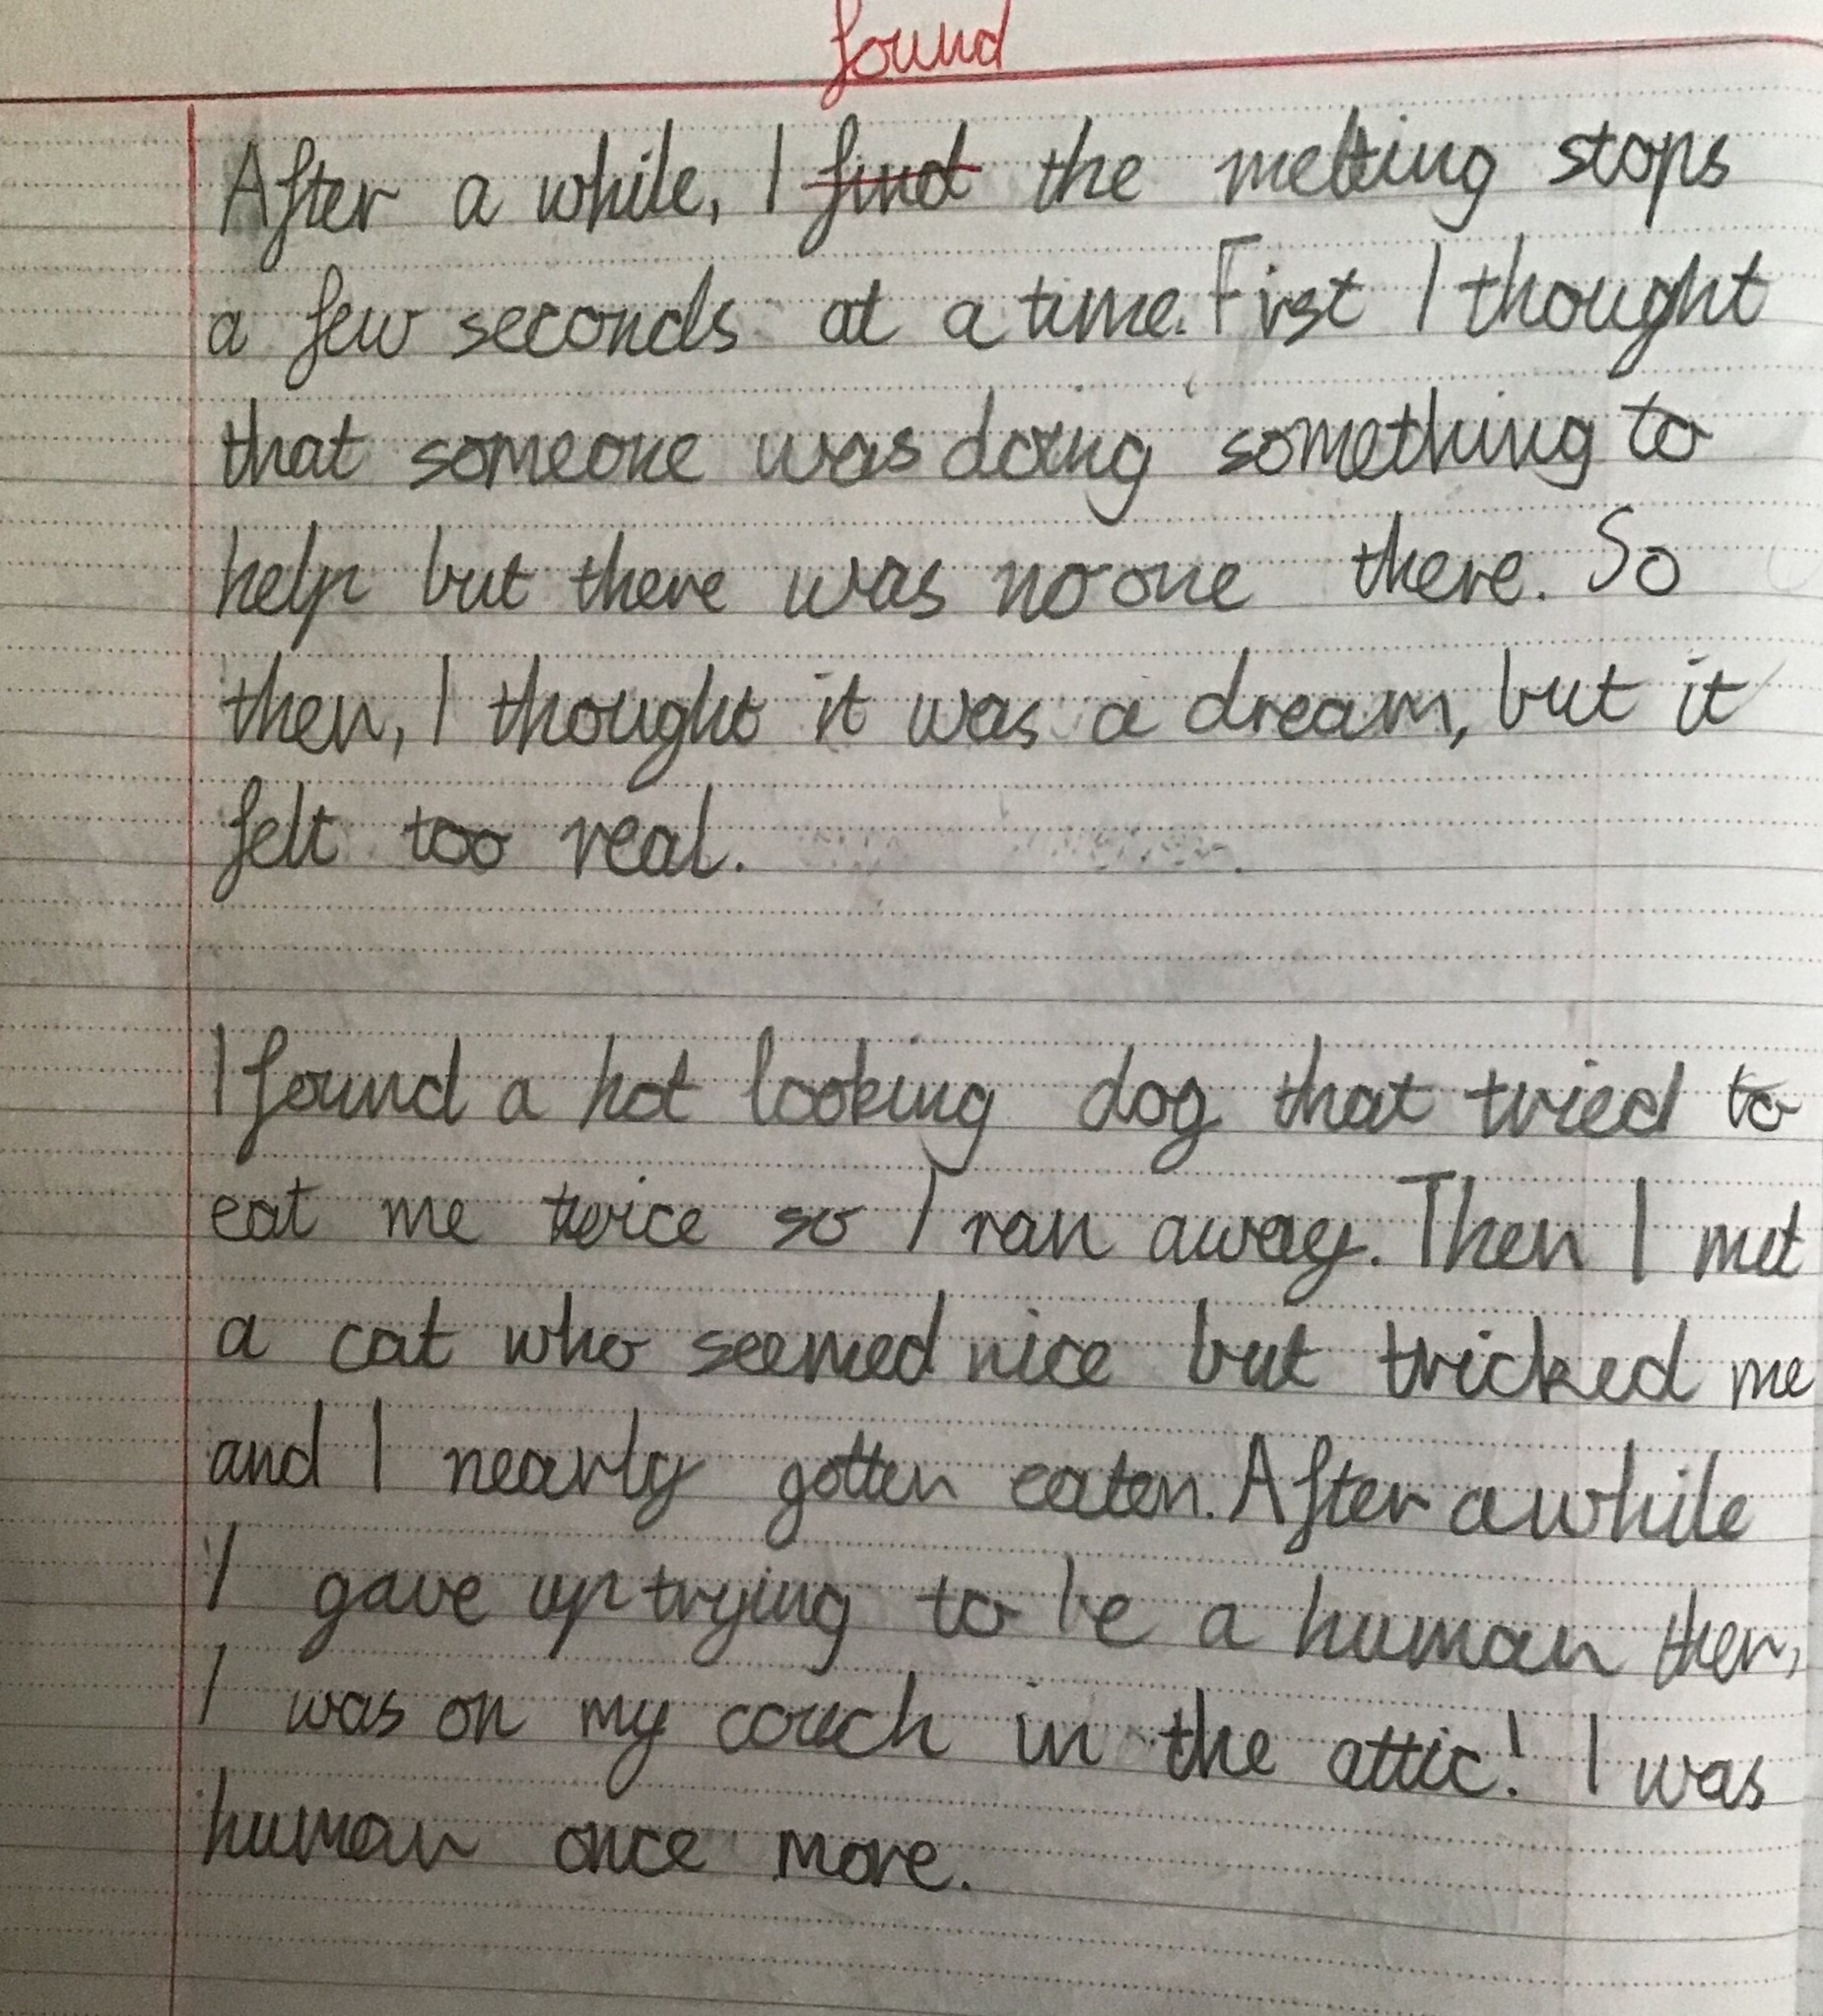 found
After a while, I find the melting stops
a few seconds at a time. First I thought
that someone was doing something to
help but there was no one there. So
then, I thought it was a dream, but it
felt too real.
I found a hot looking dog that tried to
eat me twice so I ran away. Then I met
a cat who seemed nice but tricked me
and I nearly gotten eaten. After a while
I gave up trying to be a human then,
I was on my couch in the attic! I was
human once more.